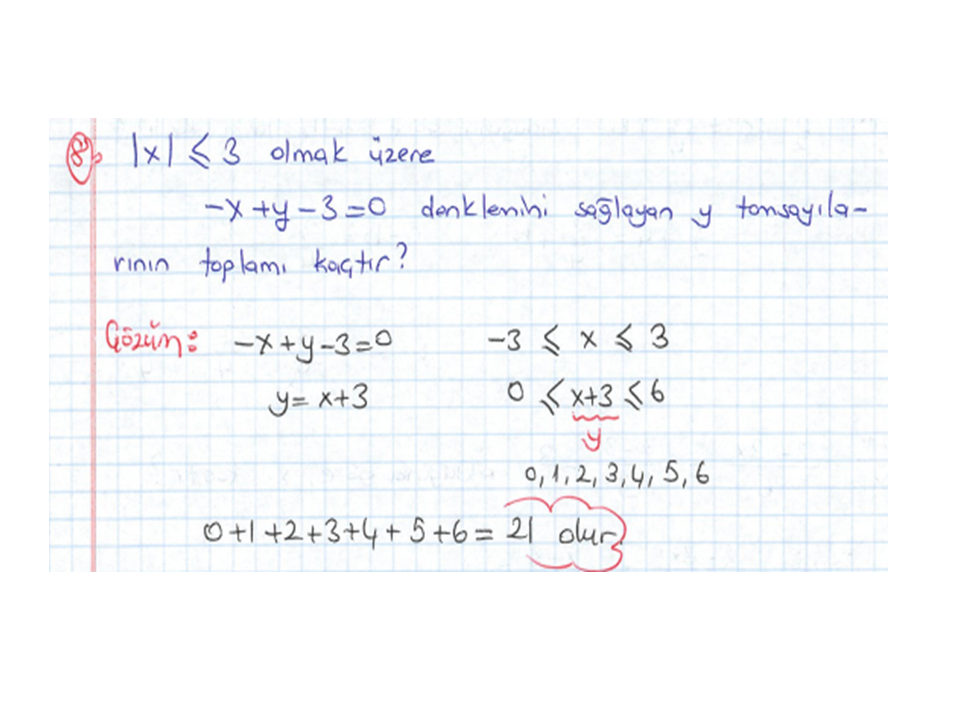 8) |x| ⩽ 3 olmak üzere
-x+y-3=0 denklemini sağlayan y tamsayıla-
rının toplamı kaçtır?
Çözüm: -x+y-3=0 -3 ⩽ x ⩽ 3
y= x+3 0 ⩽ x+3 ⩽ 6
y
0,1,2,3,4,5,6
0+1+2+3+4+5+6= 21 olur.